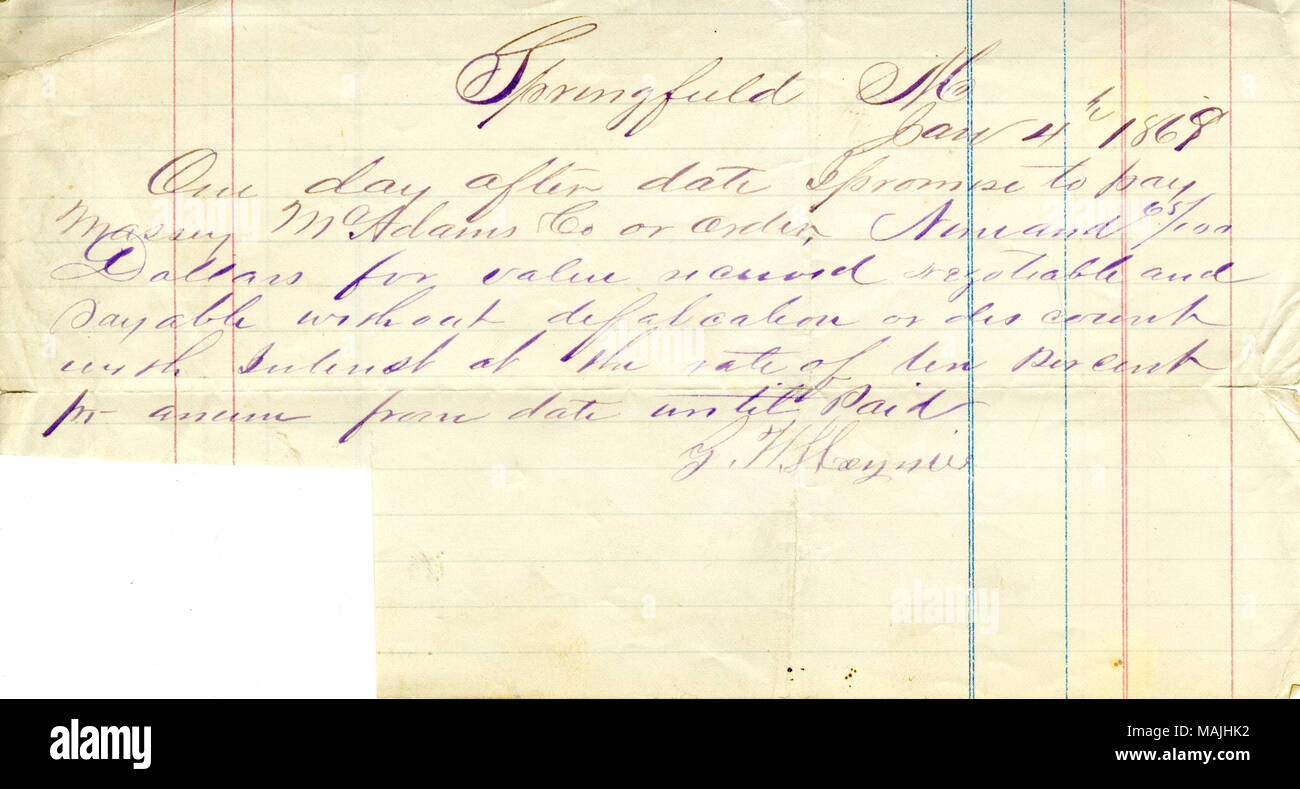 Springfield Mo
Jan 4th 1869
One day after date I promise to pay
Massey McAdams Co or order, Nine and 65/100
Dollars for value received negotiable and
payable without defalcation or discount
with Interest at the rate of ten percent
pr anum from date until Paid
Haynie
alamy
www.alamy.com
Image ID: MAJHK2